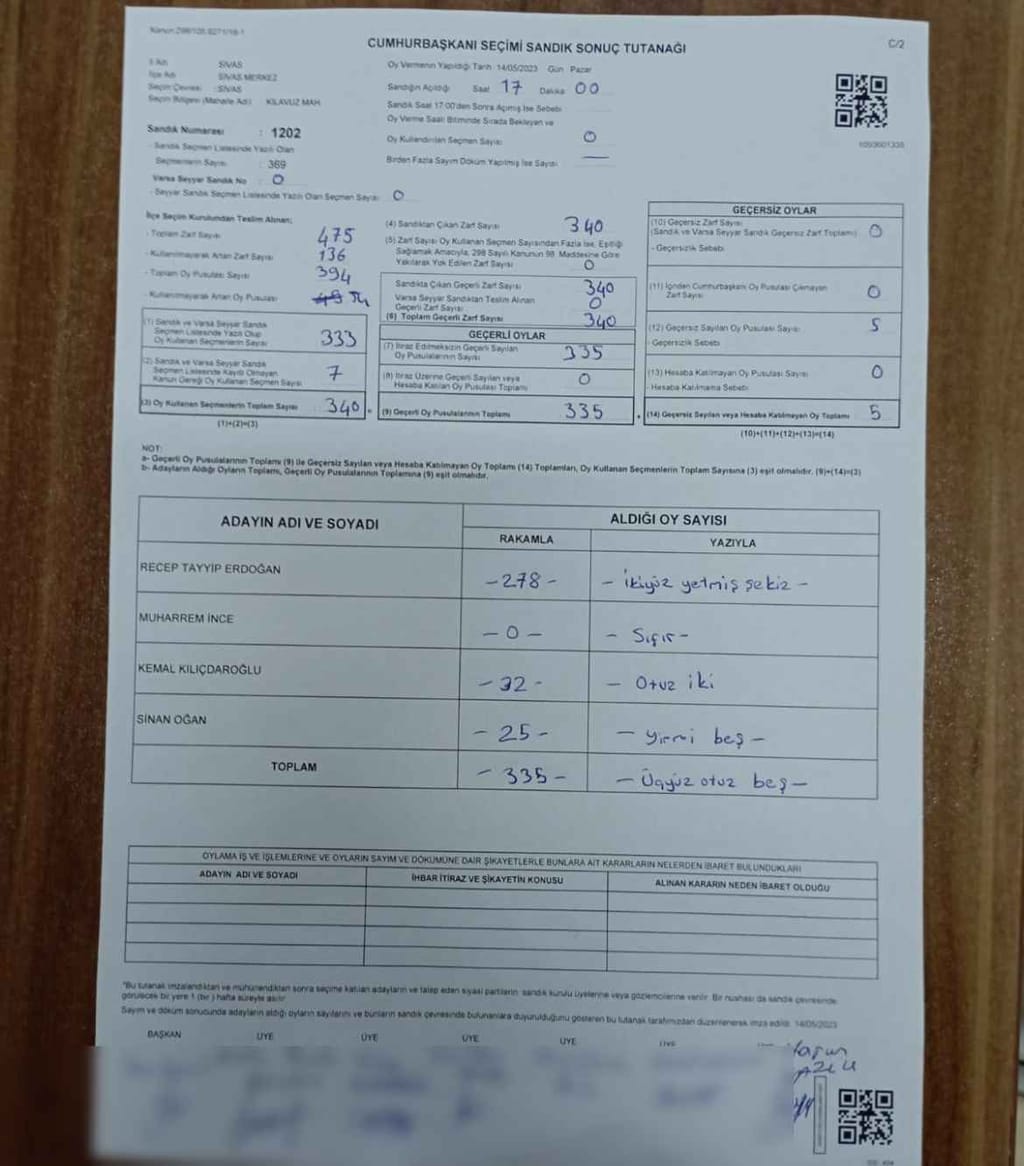 CUMHURBAŞKANI SEÇİMİ SANDIK SONUÇ TUTANAĞI
C/2
İl Adı : SİVAS
İlçe Adı : SİVAS MERKEZ
Seçim Çevresi : SİVAS
Seçim Bölgesi (Mahalle Adı) : KILAVUZ MAH.
Sandık Numarası : 1202
- Sandık Seçmen Listesinde Yazılı Olan
Seçmenlerin Sayısı : 369
Varsa Seyyar Sandık No : 0
- Seyyar Sandık Seçmen Listesinde Yazılı Olan Seçmen Sayısı : 0
Oy Vermenin Yapıldığı Tarih : 14/05/2023 Gün : Pazar
Sandığın Açıldığı Saat 17 Dakika 00
Sandık Saat 17:00'den Sonra Açılmış İse Sebebi
Oy Verme Saati Bitiminde Sırada Bekleyen ve
Oy Kullandırılan Seçmen Sayısı 0
Birden Fazla Sayım Döküm Yapılmış İse Sayısı —
İlçe Seçim Kurulundan Teslim Alınan;
- Toplam Zarf Sayısı 475
- Kullanılmayarak Artan Zarf Sayısı 136
- Toplam Oy Pusulası Sayısı 394
- Kullanılmayarak Artan Oy Pusulası 54
(1) Sandık ve Varsa Seyyar Sandık
Seçmen Listesinde Yazılı Olup
Oy Kullanan Seçmenlerin Sayısı 333
(2) Sandık ve Varsa Seyyar Sandık
Seçmen Listesinde Kayıtlı Olmayan
Kanun Gereği Oy Kullanan Seçmen Sayısı 7
(3) Oy Kullanan Seçmenlerin Toplam Sayısı 340
(1)+(2)=(3)
(4) Sandıktan Çıkan Zarf Sayısı 340
(5) Zarf Sayısı Oy Kullanan Seçmen Sayısından Fazla İse, Eşitliği
Sağlamak Amacıyla, 298 Sayılı Kanunun 98. Maddesine Göre
Yakılarak Yok Edilen Zarf Sayısı 0
Sandıkta Çıkan Geçerli Zarf Sayısı 340
Varsa Seyyar Sandıktan Teslim Alınan
Geçerli Zarf Sayısı 0
(6) Toplam Geçerli Zarf Sayısı 340
GEÇERLİ OYLAR
(7) İtiraz Edilmeksizin Geçerli Sayılan
Oy Pusulalarının Sayısı 335
(8) İtiraz Üzerine Geçerli Sayılan veya
Hesaba Katılan Oy Pusulası Toplamı 0
(9) Geçerli Oy Pusulalarının Toplamı 335
GEÇERSİZ OYLAR
(10) Geçersiz Zarf Sayısı
(Sandık ve Varsa Seyyar Sandık Geçersiz Zarf Toplamı) 0
- Geçersizlik Sebebi
(11) İçinden Cumhurbaşkanı Oy Pusulası Çıkmayan
Zarf Sayısı 0
(12) Geçersiz Sayılan Oy Pusulası Sayısı 5
- Geçersizlik Sebebi
(13) Hesaba Katılmayan Oy Pusulası Sayısı 0
- Hesaba Katılmama Sebebi
(14) Geçersiz Sayılan veya Hesaba Katılmayan Oy Toplamı 5
(10)+(11)+(12)+(13)=(14)
NOT:
a- Geçerli Oy Pusulalarının Toplamı (9) ile Geçersiz Sayılan veya Hesaba Katılmayan Oy Toplamı (14) Toplamları, Oy Kullanan Seçmenlerin Toplam Sayısına (3) eşit olmalıdır. (9)+(14)=(3)
b- Adayların Aldığı Oyların Toplamı, Geçerli Oy Pusulalarının Toplamına (9) eşit olmalıdır.
ADAYIN ADI VE SOYADI
ALDIĞI OY SAYISI
RAKAMLA YAZIYLA
RECEP TAYYİP ERDOĞAN - 278 - - ikiyüz yetmiş şekiz -
MUHARREM İNCE - 0 - - Sıfır -
KEMAL KILIÇDAROĞLU - 32 - - Otuz iki
SİNAN OĞAN - 25 - - yirmi beş -
TOPLAM - 335 - - Üçyüz otuz beş -
OYLAMA İŞ VE İŞLEMLERİNE VE OYLARIN SAYIM VE DÖKÜMÜNE DAİR ŞİKAYETLERLE BUNLARA AİT KARARLARIN NELERDEN İBARET BULUNDUKLARI
ADAYIN ADI VE SOYADI İHBAR İTİRAZ VE ŞİKAYETİN KONUSU ALINAN KARARIN NEDEN İBARET OLDUĞU
*Bu tutanak imzalandıktan ve mühürlendikten sonra seçime katılan adayların ve talep eden siyasi partilerin sandık kurulu üyelerine veya gözlemcilerine verilir. Bir nüshası da sandık çevresinde
görülecek bir yere 1 (bir) hafta süreyle asılır.
Sayım ve döküm sonucunda adayların aldığı oyların sayılarını ve bunların sandık çevresinde bulunanlara duyurulduğunu gösteren bu tutanak tarafımızdan düzenlenerek imza edildi. 14/05/2023
BAŞKAN ÜYE ÜYE ÜYE ÜYE